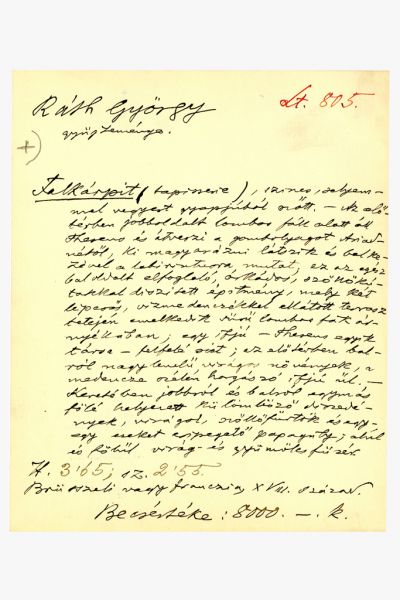 Ráth György
Lt. 805.
gyűjteménye.
+)
Falkárpit (tapisserie), szines, selyem-
mel vegyest gyapjúból szőtt. — Az elő-
térben jobboldalt lombos fák alatt áll
Theseus és átveszi a gombolyagot Ariad-
nétől, ki magyarázni látszik és balke-
zével a labirintusra mutat; ez az egész
baloldalt elfoglaló, árkádos, szökőkú-
takkal díszített építmény, mely két
lépcsős, vizmedenczékkel ellátott terrasz
tetején emelkedik sűrű lombos fák ár-
nyékában; egy ifjú — Theseus egyik
társa — felfelé siet; az előtérben bal-
ról nagylevelű virágos növények, a
medencze szélén horgászó ifjú ül. —
Keretében jobbról és balról egymás
fölé helyezett különböző díszedé-
nyek, virágot, szőllőfürtök és egy-
egy ezeket csipegető papagály; alul
és fölül virág- és gyümölcsfüzér.
H. 3·65; sz. 2·55.
Brüsszeli vagy franczia, XVII. század.
Becsértéke: 8000. — k.